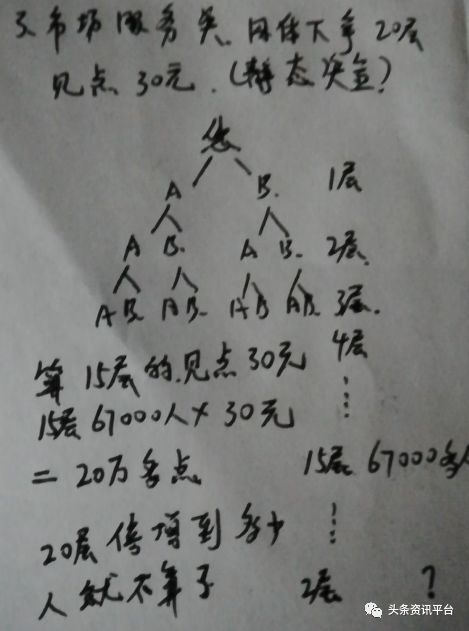 3 市场服务奖. 团体下拿 20层
见点 30元. (静态奖金?)
您
A B. 1层
A B. A B. 2层.
A B. A B. A B A B. 3层.
4层
算 15层的.见点 30元
15层 67000人 × 30元
= 20万多点. 15层 67000多人
20层 倍增到多少
人就不算了 2层 ?
头条资讯平台